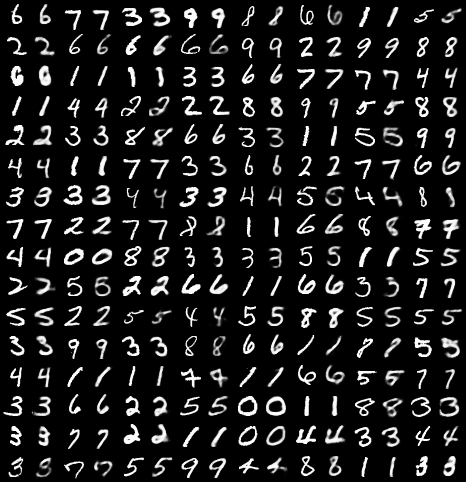 6 6 7 7 3 3 9 9 8 8 6 6 1 1 5 5
2 2 6 6 6 6 6 6 9 9 2 2 9 9 8 8
6 6 1 1 1 1 3 3 6 6 7 7 7 7 4 4
1 1 4 4 2 2 2 2 8 8 9 9 5 5 8 8
2 2 3 3 8 8 6 6 3 3 1 1 5 5 9 9
4 4 1 1 7 7 3 3 6 6 2 2 7 7 6 6
3 3 3 3 4 4 3 3 4 4 5 5 4 4 8 8
7 7 2 2 7 7 8 8 1 1 6 6 8 8 7 7
4 4 0 0 8 8 3 3 3 3 5 5 1 1 5 5
2 2 5 5 2 2 6 6 1 1 6 6 3 3 7 7
5 5 2 2 5 5 4 4 5 5 8 8 5 5 5 5
3 3 9 9 3 3 8 8 6 6 1 1 8 8 5 5
4 4 1 1 1 1 4 4 1 1 6 6 5 5 7 7
3 3 6 6 2 2 5 5 0 0 1 1 8 8 3 3
3 3 7 7 2 2 1 1 0 0 4 4 3 3 4 4
3 3 7 7 5 5 9 9 4 4 8 8 1 1 3 3